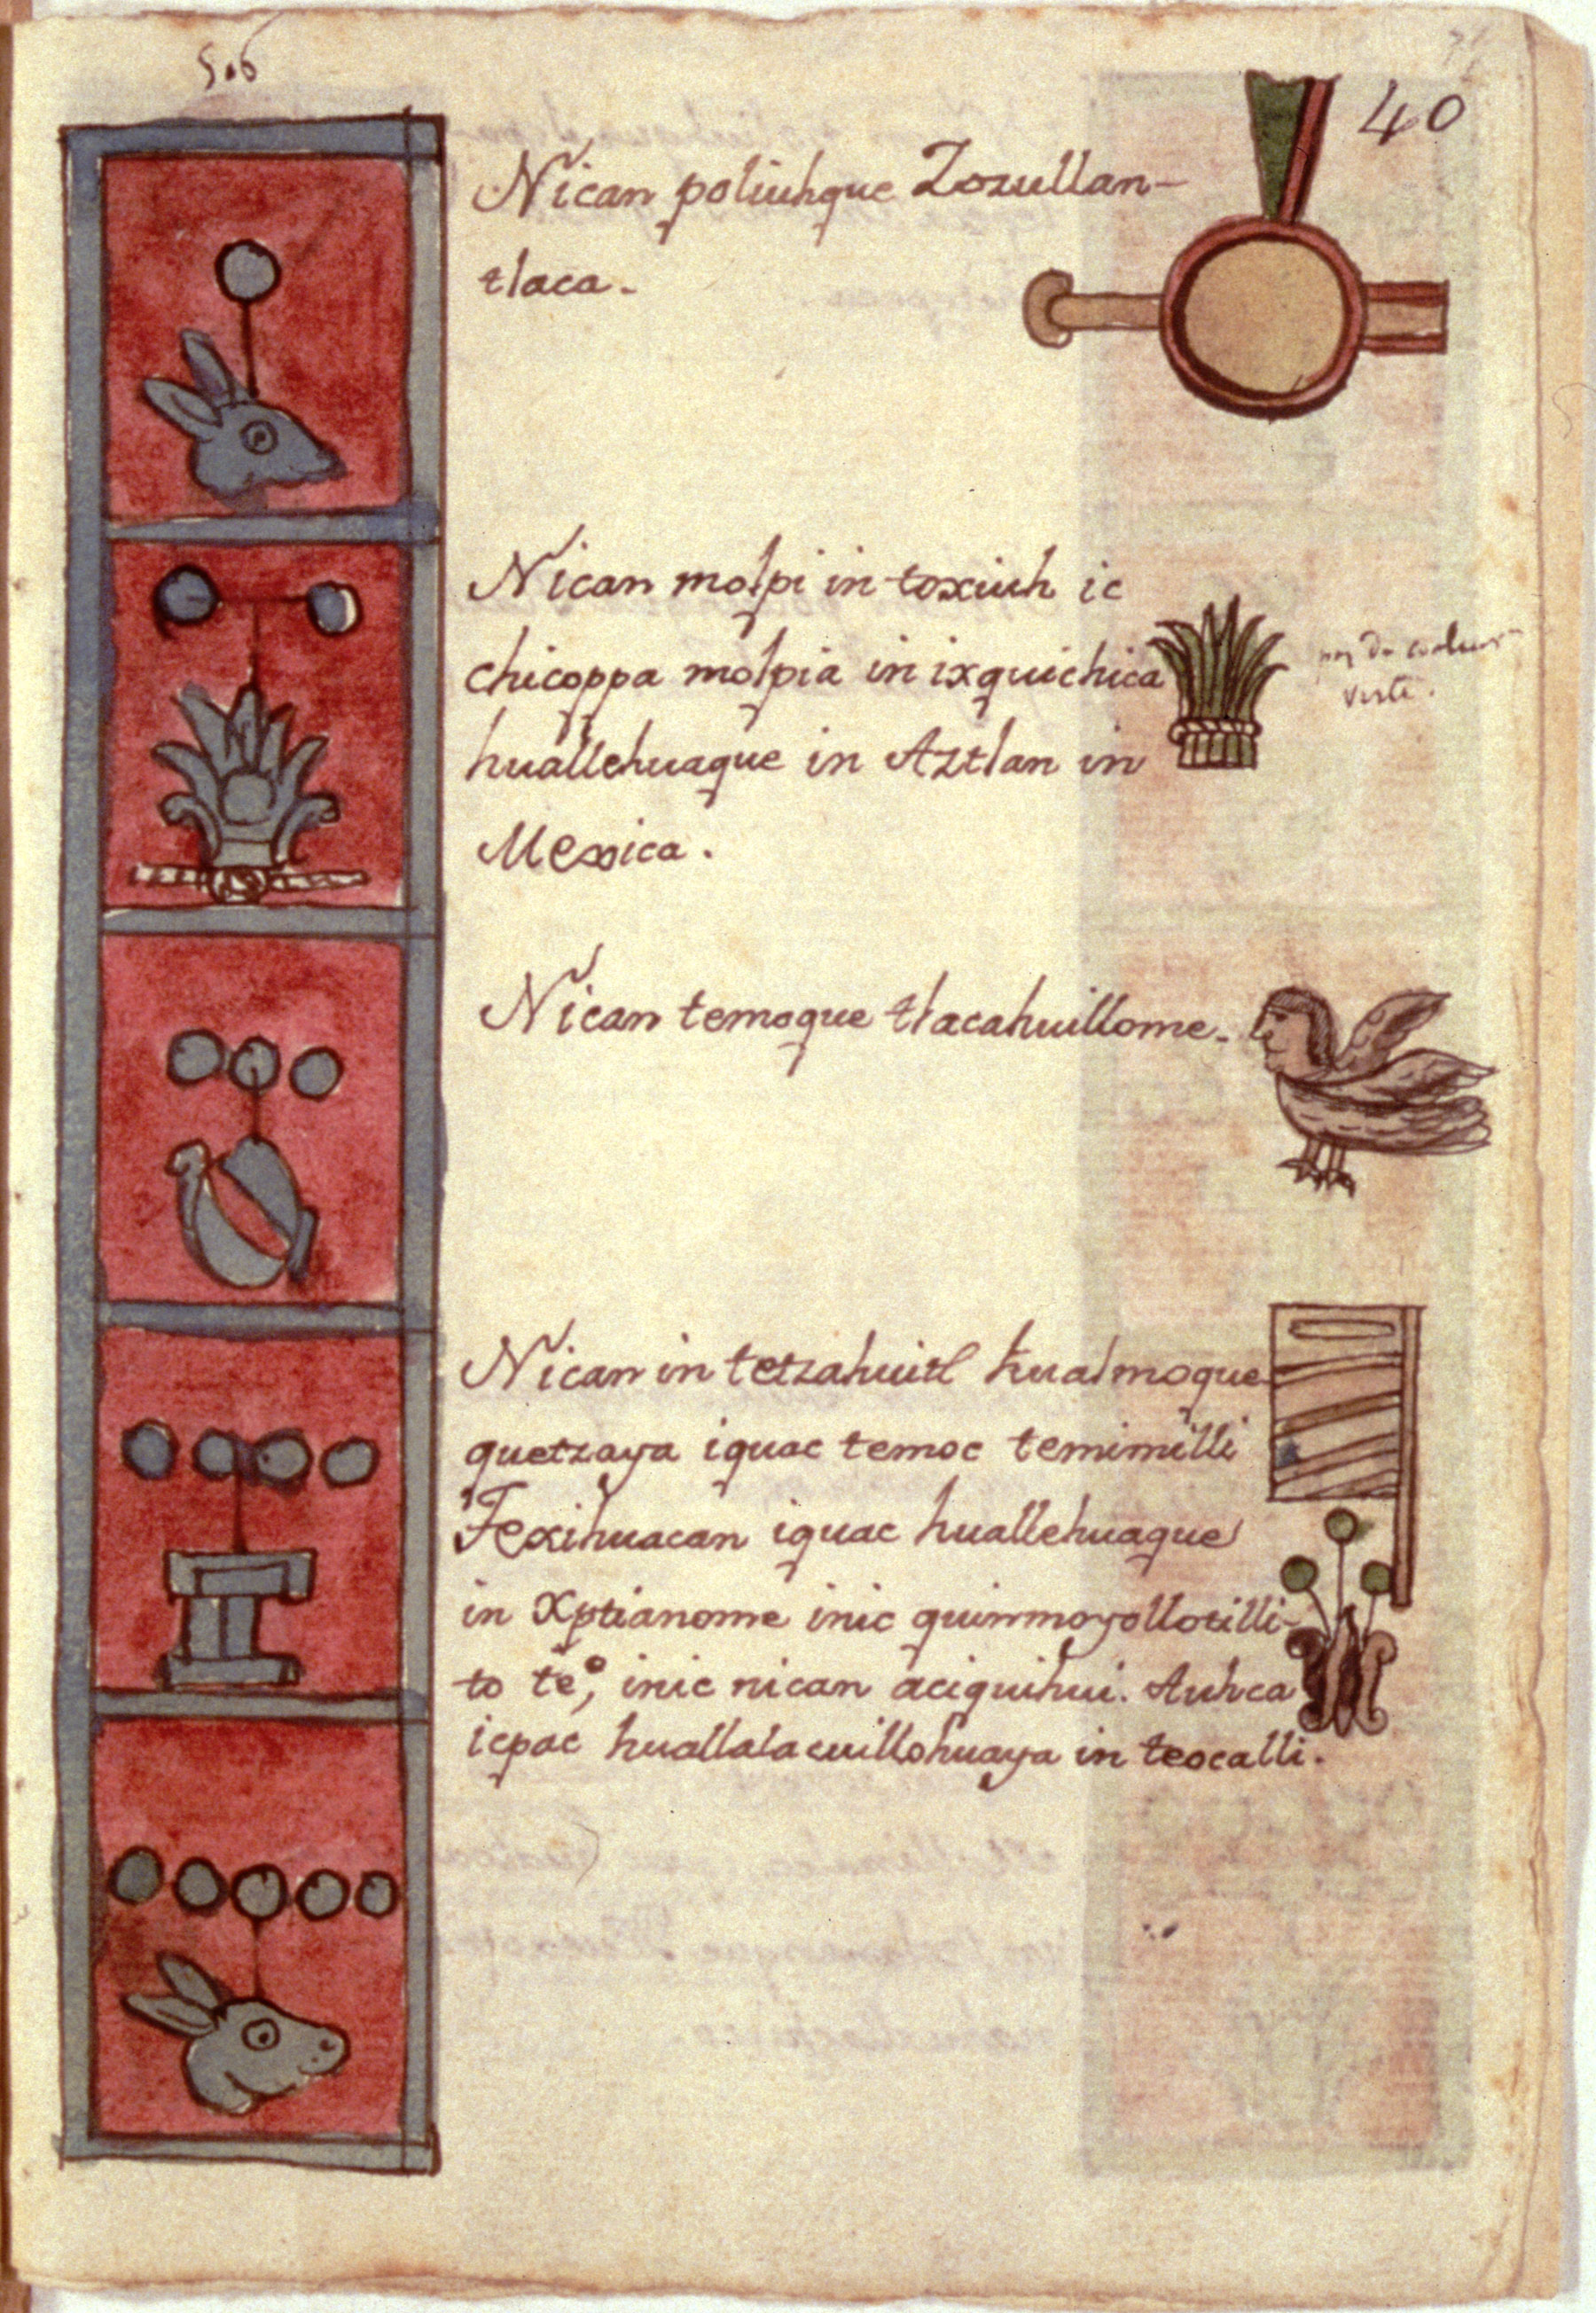 5.6
40
Nican poliuhque Zozullan-
tlaca.
Nican molpi in toxiuh ic
chicoppa molpia in ixquichica
huallehuaque in Aztlan in
Mexica.
verte.
Nican temoque tlacahuillome.
Nican in tetzahuitl hualmoque
quetzaya iquac temoc temimilli
Texihuacan iquac huallehuaque
in Xptianome inic quinmoyollotilli-
to te⁰, inic nican aciquihui. Auh ca
icpac huallalacuillohuaya in teocalli.